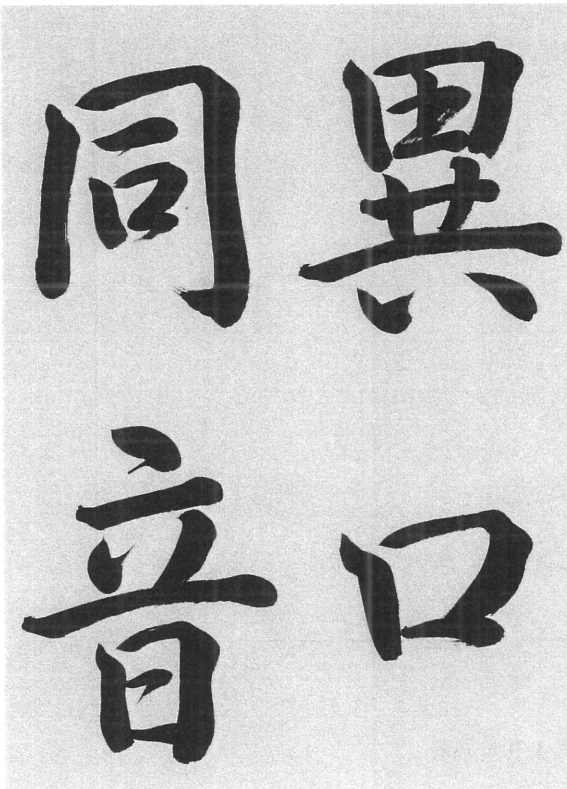 異口
同音